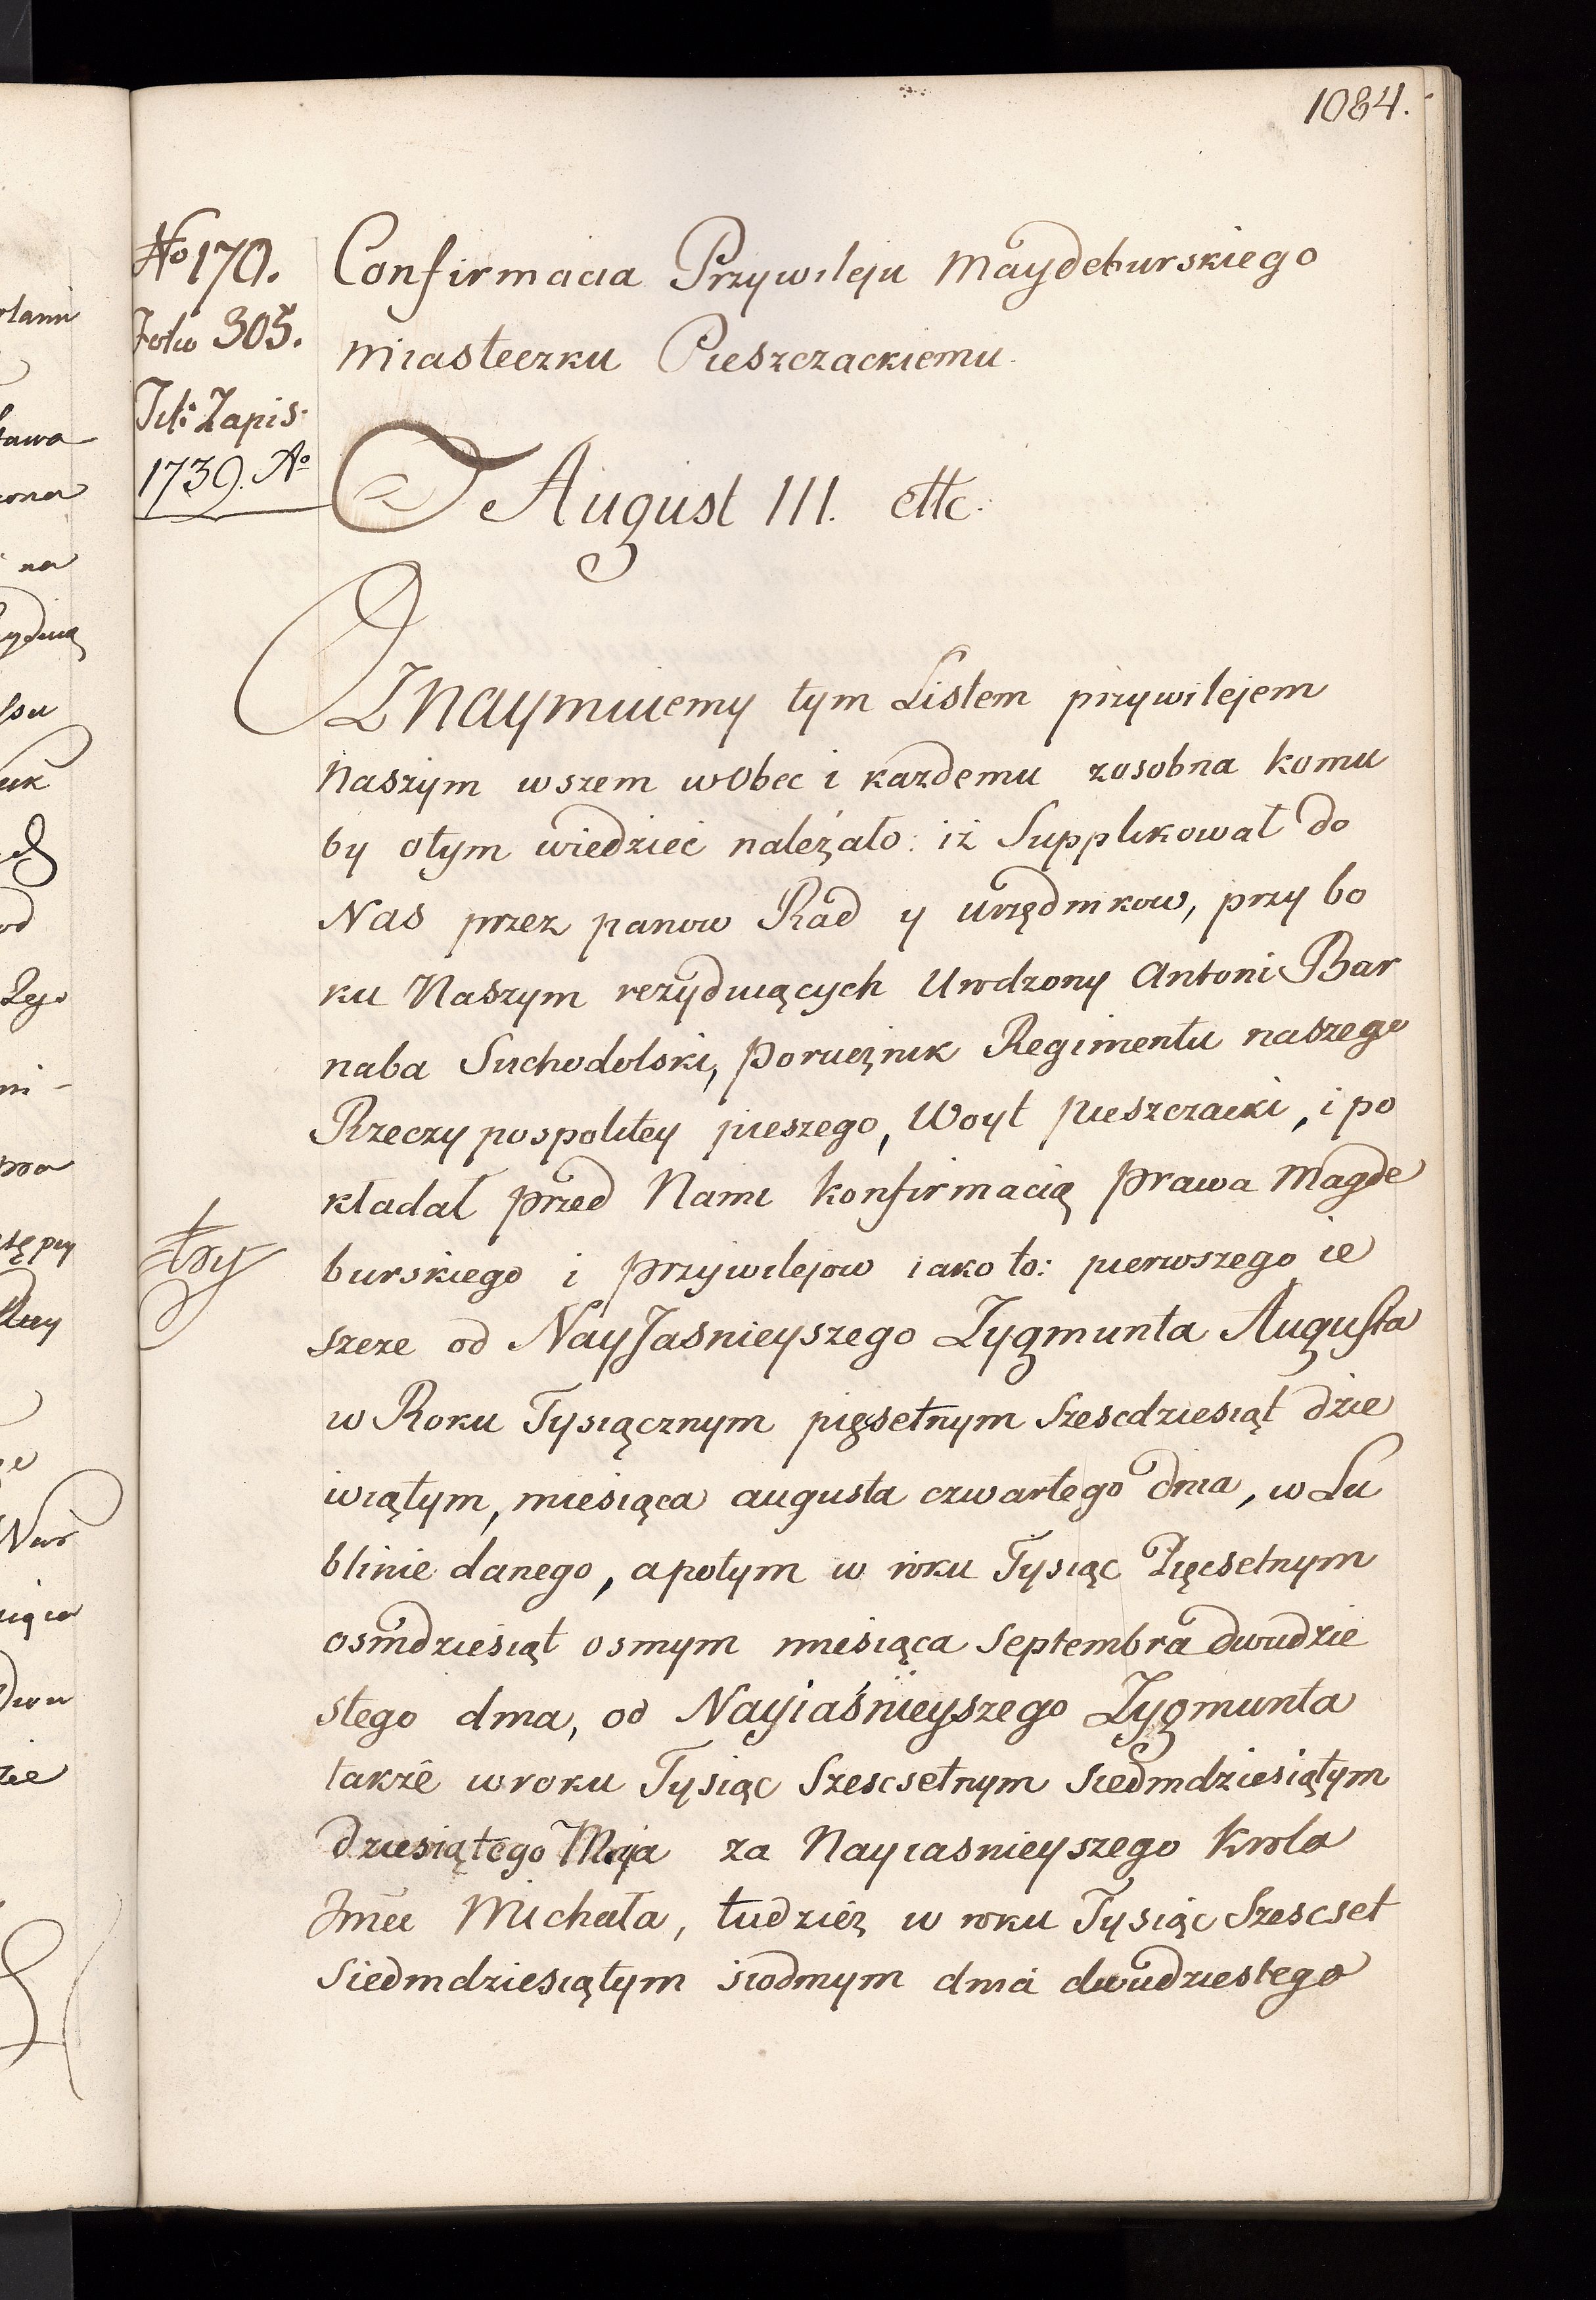 1084.
No 170.
Folio 305.
Tit: Zapis.
1739. Ao
Confirmacia Przywileju Maydeburskiego
Miasteczku Pieszczackiemu.
August III. ettc.
Oznaymuiemy tym Listem przywilejem
Naszym wszem wobec i kazdemu zosobna komu
by otym wiedzieć należało: iż Supplikował do
Nas przez panow Rad y urzędnikow, przy bo
ku Naszym rezyduiących Urodzony Antoni Bar
naba Suchodolski, Porucznik Regimentu naszego
Rzeczy pospolitey pieszego, Woyt Pieszczacki, i po
kładał przed Nami Konfirmacią Prawa Magde
burskiego i Przywilejow iako to: pierwszego ie
szcze od NayJasnieyszego Zygmunta Augusta
w Roku Tysiącznym pięsetnym Szescdziesiąt dzie
wiątym, miesiąca augusta czwartego dnia, w Lu
blinie danego, apotym w roku Tysiąc Pięcsetnym
osmdziesiąt osmym miesiąca Septembra dwudzie
stego dnia, od Nayiaśnieyszego Zygmunta
także wroku Tysiąc Szescsetnym Siedmdziesiątym
dziesiątego Maja za Nayiasnieyszego Krola
Jmci Michała, tudzież w roku Tysiąc Szescset
Siedmdziesiątym siodmym dnia dwudziestego